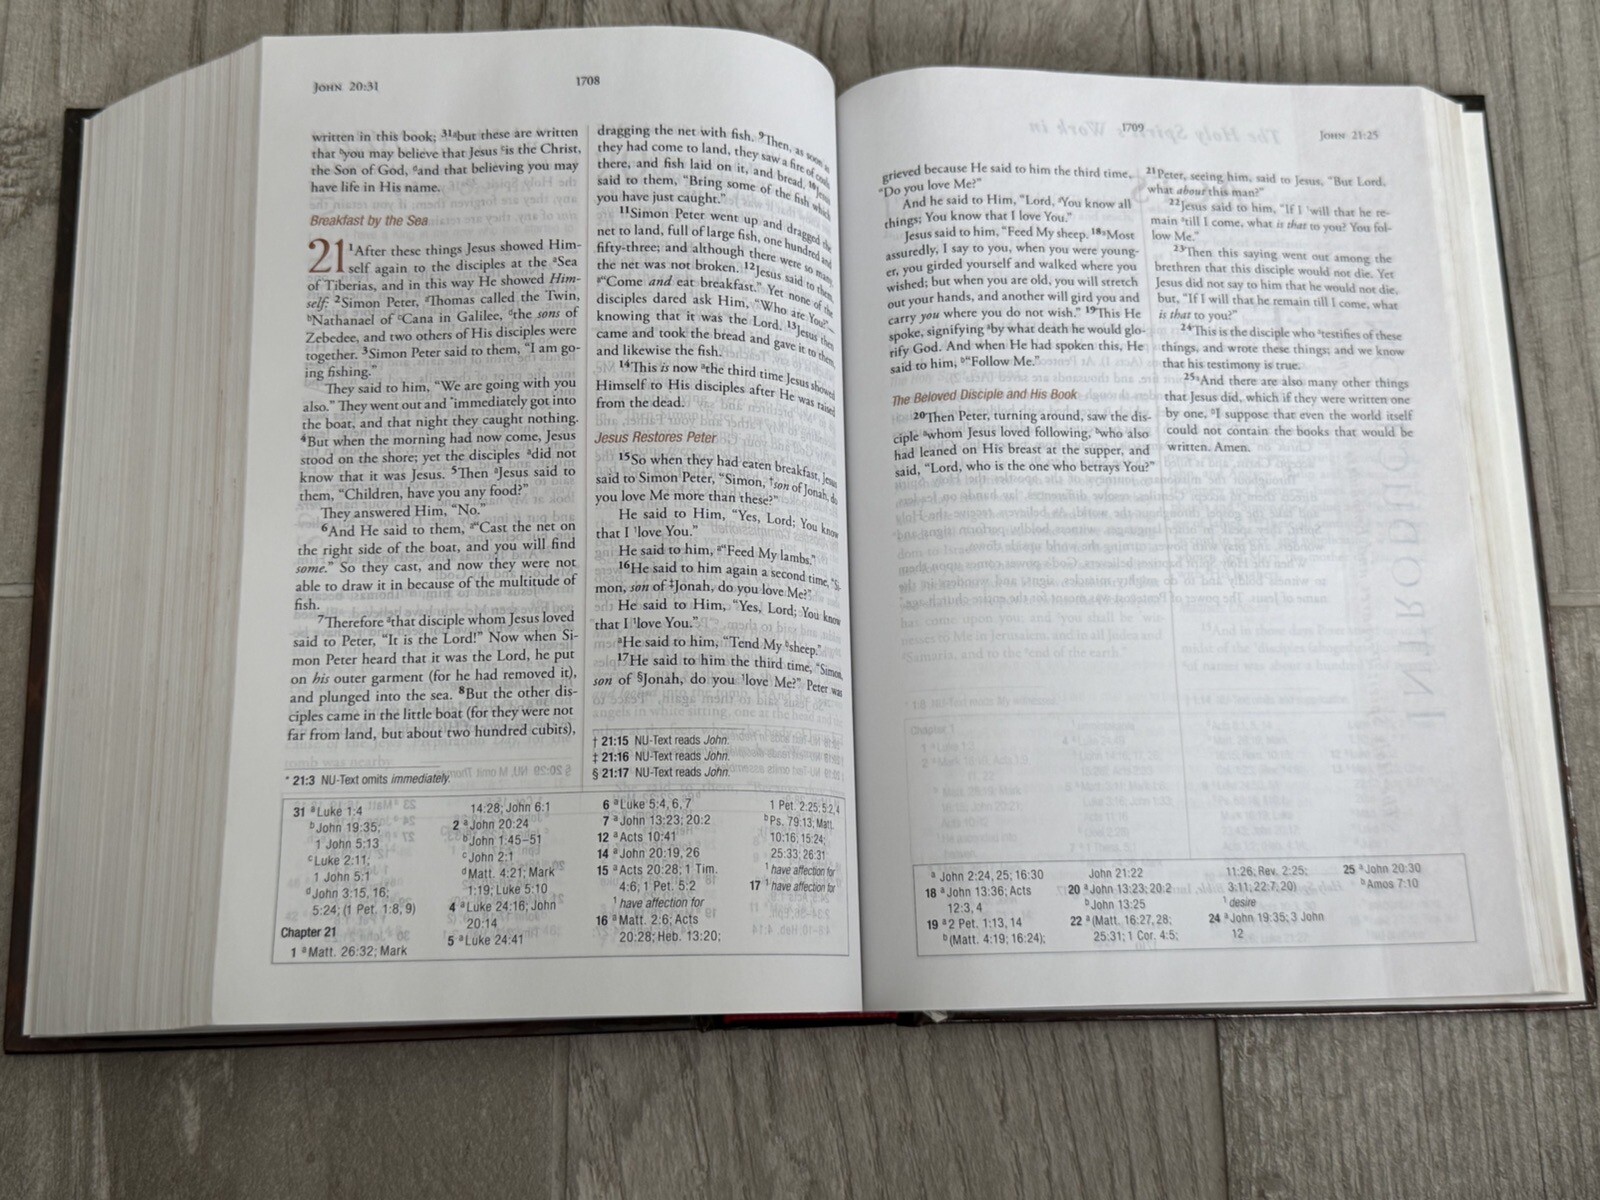 JOHN 20:31
1708
written in this book; 31abut these are written
that byou may believe that Jesus cis the Christ,
the Son of God, dand that believing you may
have life in His name.
Breakfast by the Sea
21 1After these things Jesus showed Him-
self again to the disciples at the aSea
of Tiberias, and in this way He showed Him-
self: 2Simon Peter, aThomas called the Twin,
bNathanael of cCana in Galilee, dthe sons of
Zebedee, and two others of His disciples were
together. 3Simon Peter said to them, “I am go-
ing fishing.”
They said to him, “We are going with you
also.” They went out and *immediately got into
the boat, and that night they caught nothing.
4But when the morning had now come, Jesus
stood on the shore; yet the disciples adid not
know that it was Jesus. 5Then aJesus said to
them, “Children, have you any food?”
They answered Him, “No.”
6And He said to them, a“Cast the net on
the right side of the boat, and you will find
some.” So they cast, and now they were not
able to draw it in because of the multitude of
fish.
7Therefore athat disciple whom Jesus loved
said to Peter, “It is the Lord!” Now when Si-
mon Peter heard that it was the Lord, he put
on his outer garment (for he had removed it),
and plunged into the sea. 8But the other dis-
ciples came in the little boat (for they were not
far from land, but about two hundred cubits),
* 21:3 NU-Text omits immediately.
dragging the net with fish. 9Then, as soon as
they had come to land, they saw a fire of coals
there, and fish laid on it, and bread. 10Jesus
said to them, “Bring some of the fish which
you have just caught.”
11Simon Peter went up and dragged the
net to land, full of large fish, one hundred and
fifty-three; and although there were so many,
the net was not broken. 12Jesus said to them,
a“Come and eat breakfast.” Yet none of the
disciples dared ask Him, “Who are You?”—
knowing that it was the Lord. 13Jesus then
came and took the bread and gave it to them,
and likewise the fish.
14This is now athe third time Jesus showed
Himself to His disciples after He was raised
from the dead.
Jesus Restores Peter
15So when they had eaten breakfast, Jesus
said to Simon Peter, “Simon, †son of Jonah, do
you love Me more than these?”
He said to Him, “Yes, Lord; You know
that I 1love You.”
He said to him, a“Feed My lambs.”
16He said to him again a second time, “Si-
mon, son of ‡Jonah, do you love Me?”
He said to Him, “Yes, Lord; You know
that I 1love You.”
aHe said to him, “Tend My bsheep.”
17He said to him the third time, “Simon,
son of §Jonah, do you 1love Me?” Peter was
† 21:15 NU-Text reads John.
‡ 21:16 NU-Text reads John.
§ 21:17 NU-Text reads John.
31 aLuke 1:4
bJohn 19:35;
1 John 5:13
cLuke 2:11;
1 John 5:1
dJohn 3:15, 16;
5:24; (1 Pet. 1:8, 9)
Chapter 21
1 aMatt. 26:32; Mark
14:28; John 6:1
2 aJohn 20:24
bJohn 1:45–51
cJohn 2:1
dMatt. 4:21; Mark
1:19; Luke 5:10
4 aLuke 24:16; John
20:14
5 aLuke 24:41
6 aLuke 5:4, 6, 7
7 aJohn 13:23; 20:2
12 aActs 10:41
14 aJohn 20:19, 26
15 aActs 20:28; 1 Tim.
4:6; 1 Pet. 5:2
1 have affection for
16 aMatt. 2:6; Acts
20:28; Heb. 13:20;
1 Pet. 2:25; 5:2, 4
bPs. 79:13; Matt.
10:16; 15:24;
25:33; 26:31
1 have affection for
17 1 have affection for
1709
JOHN 21:25
grieved because He said to him the third time,
“Do you love Me?”
And he said to Him, “Lord, aYou know all
things; You know that I love You.”
Jesus said to him, “Feed My sheep. 18aMost
assuredly, I say to you, when you were young-
er, you girded yourself and walked where you
wished; but when you are old, you will stretch
out your hands, and another will gird you and
carry you where you do not wish.” 19This He
spoke, signifying aby what death he would glo-
rify God. And when He had spoken this, He
said to him, b“Follow Me.”
The Beloved Disciple and His Book
20Then Peter, turning around, saw the dis-
ciple awhom Jesus loved following, bwho also
had leaned on His breast at the supper, and
said, “Lord, who is the one who betrays You?”
21Peter, seeing him, said to Jesus, “But Lord,
what about this man?”
22Jesus said to him, “If I 1will that he re-
main atill I come, what is that to you? You fol-
low Me.”
23Then this saying went out among the
brethren that this disciple would not die. Yet
Jesus did not say to him that he would not die,
but, “If I will that he remain till I come, what
is that to you?”
24This is the disciple who atestifies of these
things, and wrote these things; and we know
that his testimony is true.
25aAnd there are also many other things
that Jesus did, which if they were written one
by one, bI suppose that even the world itself
could not contain the books that would be
written. Amen.
a John 2:24, 25; 16:30
18 aJohn 13:36; Acts
12:3, 4
19 a2 Pet. 1:13, 14
b(Matt. 4:19; 16:24);
John 21:22
20 aJohn 13:23; 20:2
bJohn 13:25
22 a(Matt. 16:27, 28;
25:31; 1 Cor. 4:5;
11:26; Rev. 2:25;
3:11; 22:7, 20)
1 desire
24 aJohn 19:35; 3 John
12
25 aJohn 20:30
bAmos 7:10